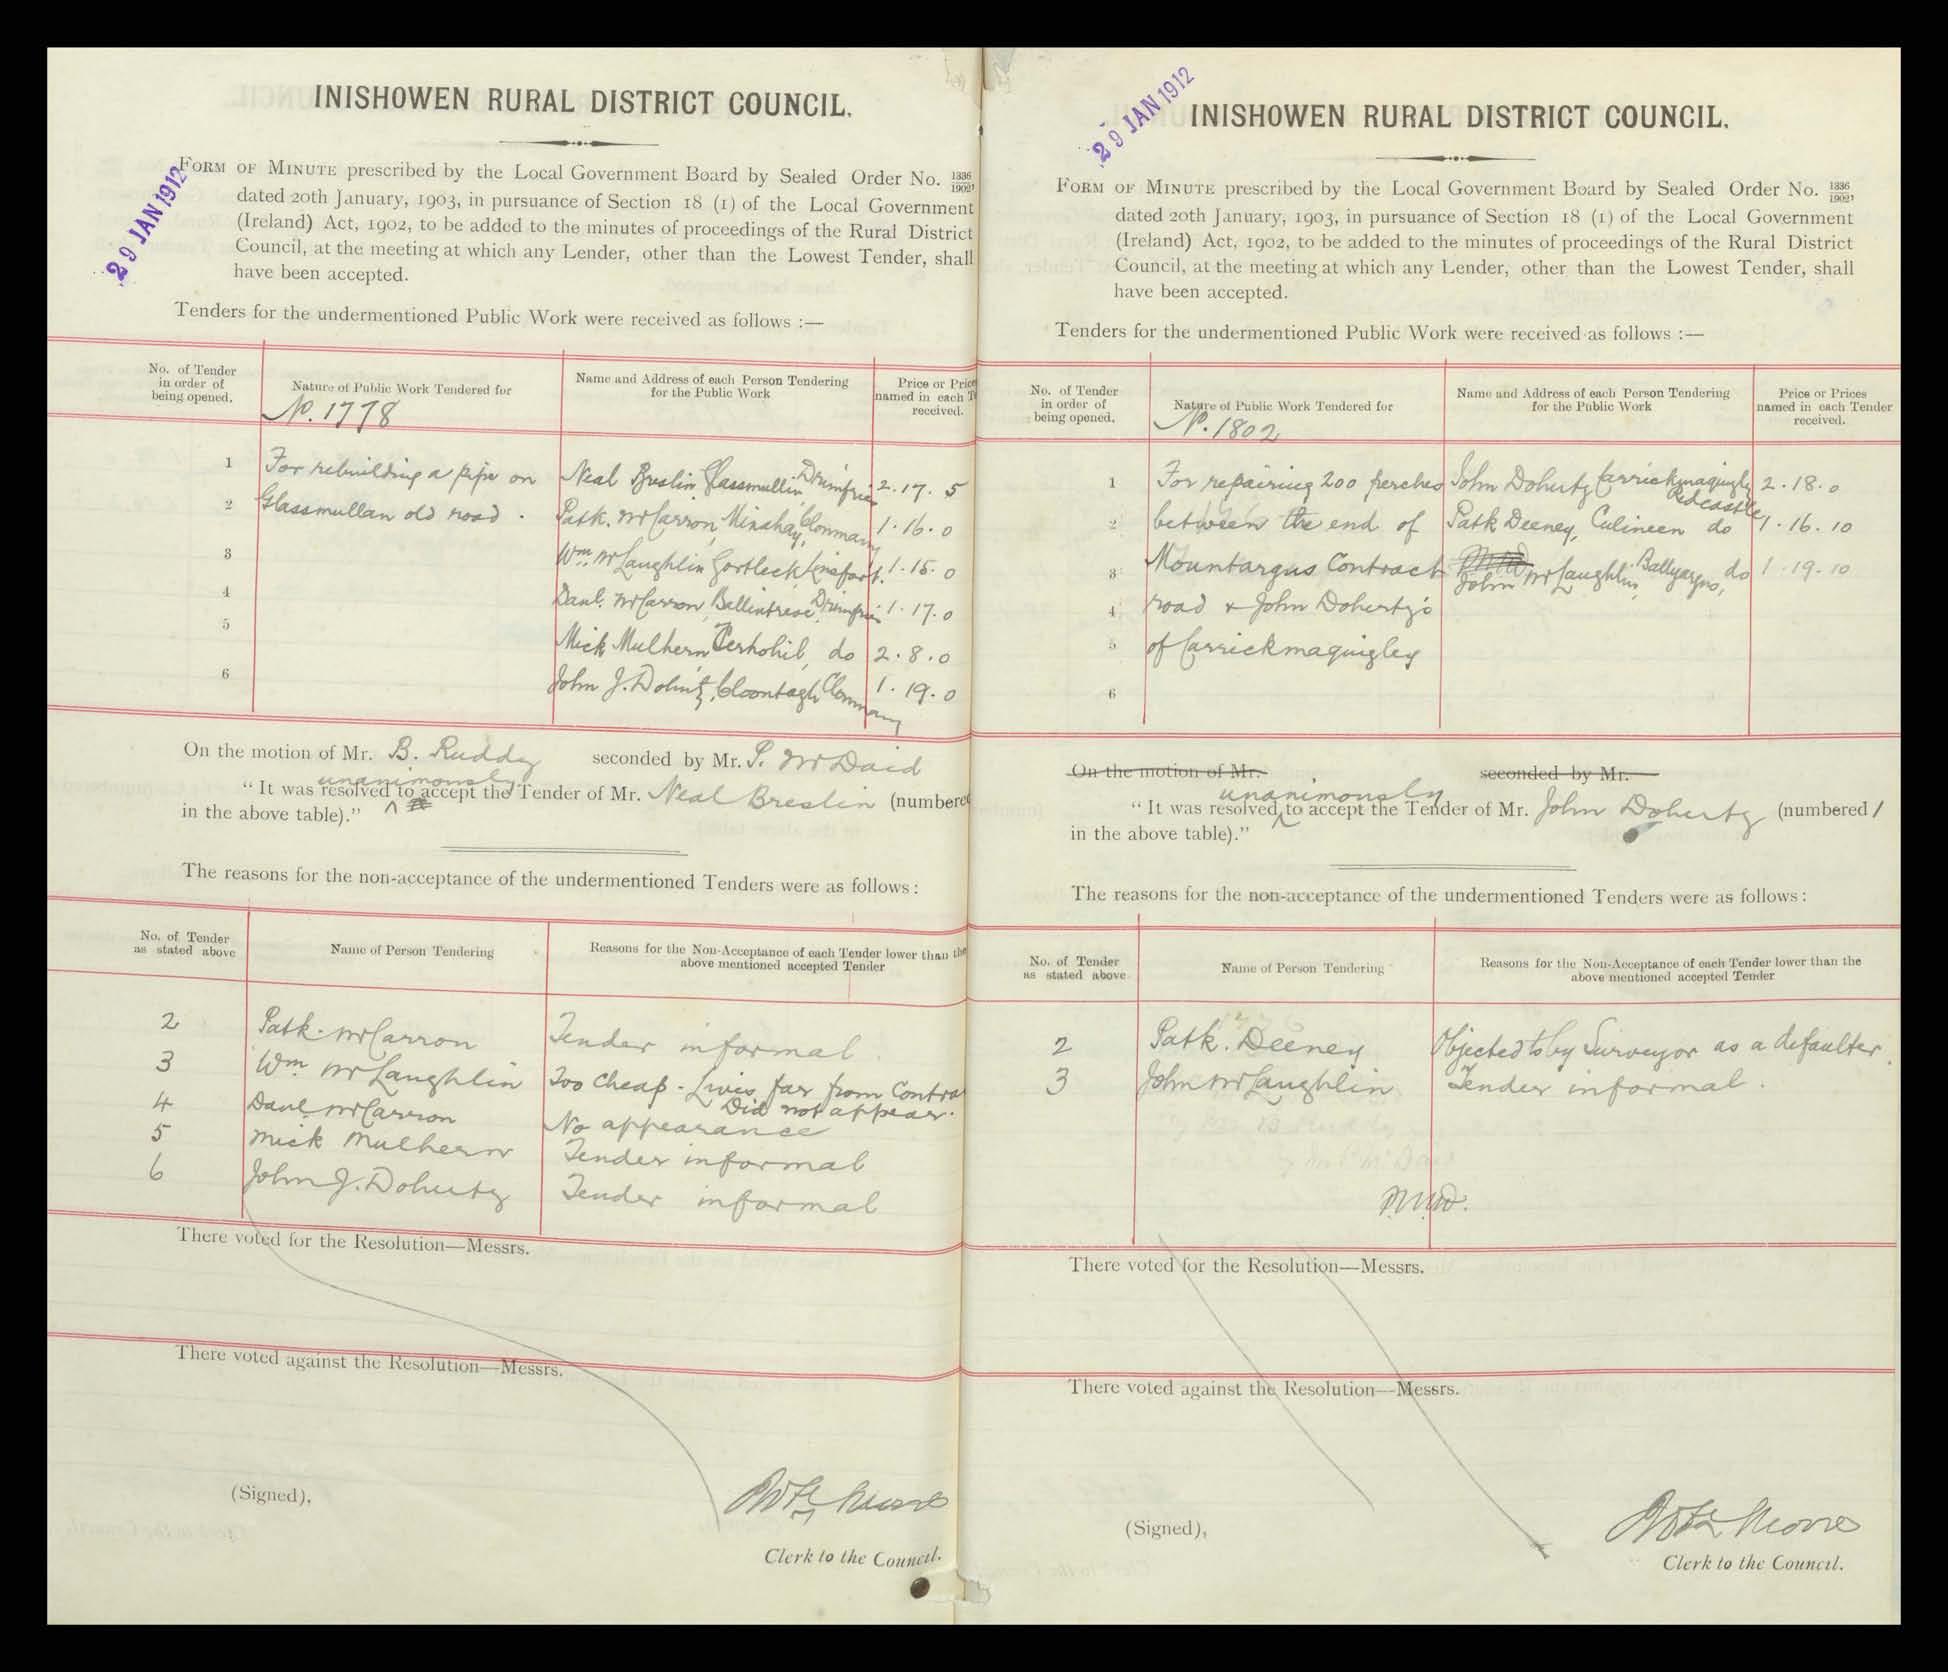 INISHOWEN RURAL DISTRICT COUNCIL.
29 JAN 1912
FORM OF MINUTE prescribed by the Local Government Board by Sealed Order No. 1336/1902,
dated 20th January, 1903, in pursuance of Section 18 (1) of the Local Government
(Ireland) Act, 1902, to be added to the minutes of proceedings of the Rural District
Council, at the meeting at which any Lender, other than the Lowest Tender, shall
have been accepted.
Tenders for the undermentioned Public Work were received as follows :—
No. of Tender in order of being opened. Nature of Public Work Tendered for Name and Address of each Person Tendering for the Public Work Price or Price named in each T received.
No. 1778
1 For rebuilding a pipe on Neal Breslin Glassmullin, Drumfries 2.17.5
2 Glassmullan old road. Patk. McCarron, Minahay, Clonmany 1.16.0
3 Wm. McLaughlin Gortleck Linsfort. 1.15.0
4 Danl. McCarron, Ballintrese, Drumfries 1.17.0
5 Mick Mulhern, do 2.8.0
6 John J. Doherty, Cloontagh Clonmany 1.19.0
On the motion of Mr. B. Ruddy seconded by Mr. P. McDaid
unanimously
" It was resolved to accept the Tender of Mr. Neal Breslin (numbered
in the above table)."
The reasons for the non-acceptance of the undermentioned Tenders were as follows:
No. of Tender as stated above Name of Person Tendering Reasons for the Non-Acceptance of each Tender lower than the above mentioned accepted Tender
2 Patk. McCarron Tender informal
3 Wm McLaughlin Too cheap - Lives far from Contra
Did not appear.
4 Danl. McCarron No appearance
5 Mick Mulhern Tender informal
6 John J. Doherty Tender informal
There voted for the Resolution—Messrs.
There voted against the Resolution—Messrs.
(Signed),
Clerk to the Council.
29 JAN 1912
INISHOWEN RURAL DISTRICT COUNCIL.
FORM OF MINUTE prescribed by the Local Government Board by Sealed Order No. 1336/1902,
dated 20th January, 1903, in pursuance of Section 18 (1) of the Local Government
(Ireland) Act, 1902, to be added to the minutes of proceedings of the Rural District
Council, at the meeting at which any Lender, other than the Lowest Tender, shall
have been accepted.
Tenders for the undermentioned Public Work were received as follows :—
No. of Tender in order of being opened. Nature of Public Work Tendered for Name and Address of each Person Tendering for the Public Work Price or Prices named in each Tender received.
No. 1802
1 For repairing 200 perches John Doherty Carrickmaquigley Redcastle 2.18.0
2 between the end of Patk Deeney, Culineen do 1.16.10
3 Mountargus Contract John McLaughlin, Ballyargus, do 1.19.10
4 road & John Doherty's
5 of Carrickmaquigley
6
On the motion of Mr. seconded by Mr.
unanimously
" It was resolved to accept the Tender of Mr. John Doherty (numbered 1
in the above table)."
The reasons for the non-acceptance of the undermentioned Tenders were as follows:
No. of Tender as stated above Name of Person Tendering Reasons for the Non-Acceptance of each Tender lower than the above mentioned accepted Tender
2 Patk. Deeney Objected to by Surveyor as a defaulter.
3 John McLaughlin Tender informal.
There voted for the Resolution—Messrs.
There voted against the Resolution—Messrs.
(Signed),
Clerk to the Council.